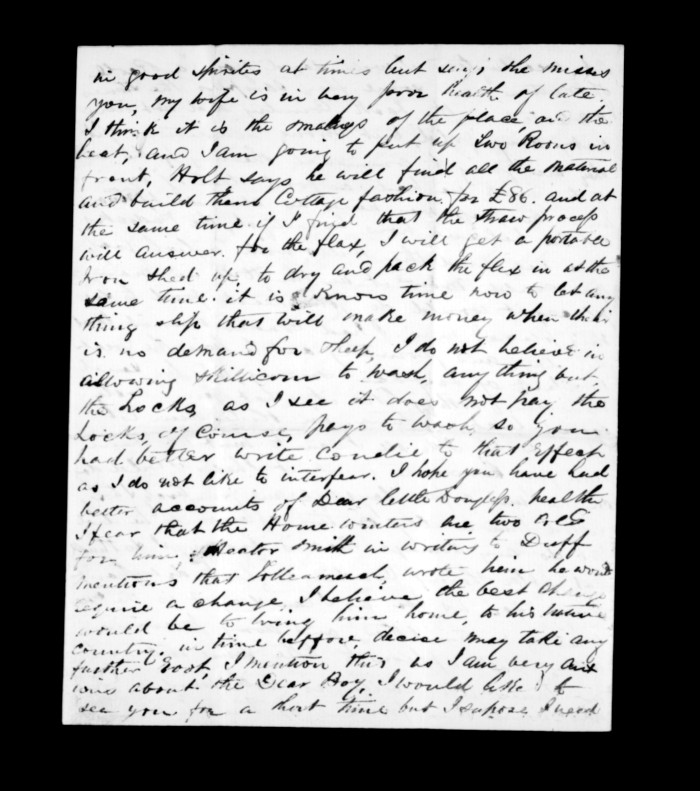 in good spirites at times but says she misses
you, my wife is in very poor health of late.
I think it is the smalness of the place, and the
heat, and I am going to put up two Rooms in
front, Holt says he will find all the material
and build them Cottage fashion for £86. and at
the same time if I find that the straw process
will answer for the flax, I will get a portable
Iron shed up, to dry and pack the flax in at the
same time. it is know time now to let any
thing slip that will make money when their
is no demand for sheep, I do not believe in
allowing Skillicorn to wash, any thing but
the Locks, as I see it does not pay. the
Locks, of course, pays to wash so you
had better write Condie to that effect
as I do not like to interfear. I hope you have had
better accounts of Dear little Douglass, health
I fear that the Home winters are two cold
for him, Smith in writing to Duff
mentions that wrote him he would
require a change, I believe, the best change
would be to bring him home, to his native
country. in time beffore, decise may take any
further Root, I mention this as I am very anx
ious about the Dear Boy, I would like to
see you for a short time but I supose I need